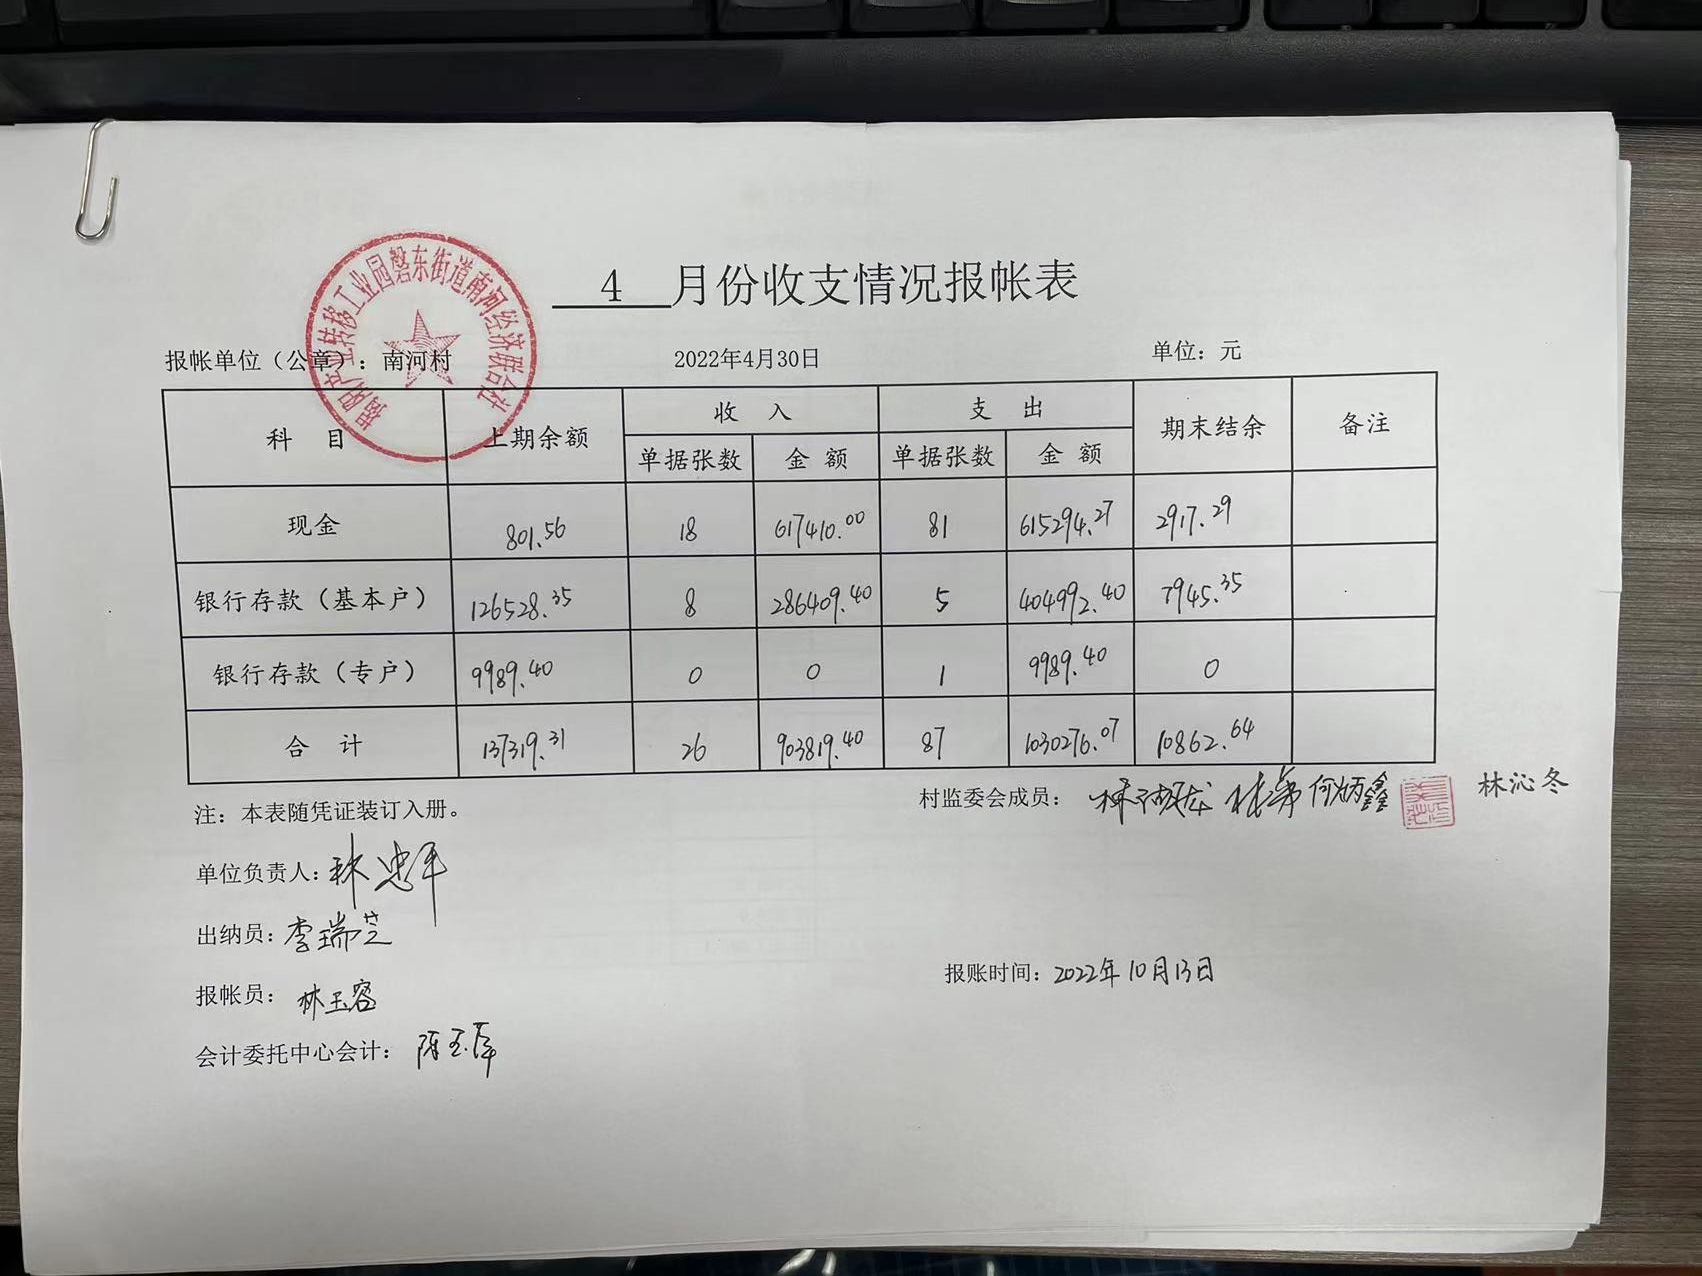 揭阳产业转移工业园磐东街道南河经济联合社
4 月份收支情况报帐表
报帐单位（公章）：南河村 2022年4月30日 单位：元
科 目 上期余额 收 入 支 出 期末结余 备注
单据张数 金 额 单据张数 金 额
现金 801.56 18 617410.00 81 615294.27 2917.29
银行存款（基本户） 126528.35 8 286409.40 5 404992.40 7945.35
银行存款（专户） 9989.40 0 0 1 9989.40 0
合 计 137319.31 26 903819.40 87 1030276.07 10862.64
注：本表随凭证装订入册。
村监委会成员： 何炳鑫 林沁冬
单位负责人：林忠平
出纳员：李瑞芝
报帐员：林玉容
报账时间：2022年10月13日
会计委托中心会计：陈玉萍